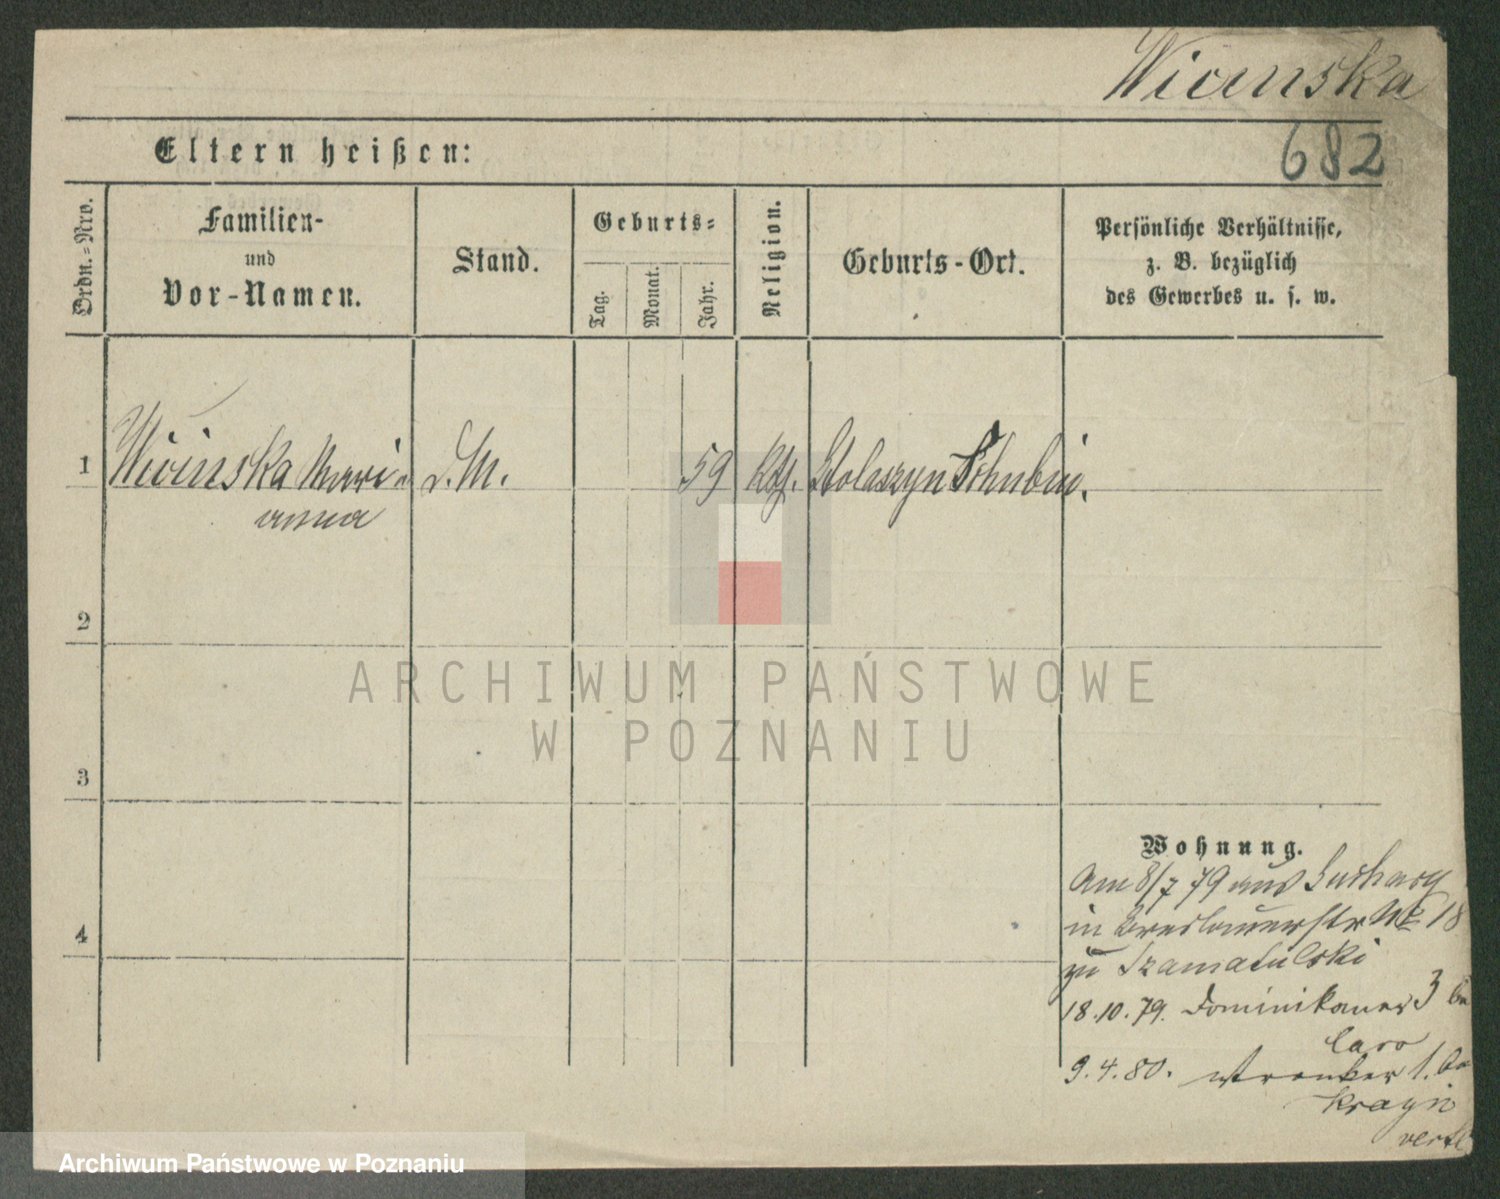 Wicinska
682
Eltern heißen:
Ordn.-Nro.
Familien-
und
Vor-Namen.
Stand.
Geburts-
Tag.
Monat.
Jahr.
Religion.
Geburts-Ort.
Persönliche Verhältnisse,
z. B. bezüglich
des Gewerbes u. s. w.
1 Wicinska Mari- d.M. 59 kth. Schubin.
anna
2
3
4
ARCHIWUM PAŃSTWOWE
W POZNANIU
Wohnung.
Am 8/7 79 aus
in Breslauerstr No 18
zu Szamatulski
18.10.79. Dominikaner 3 bei
Caro
9.4.80. Wronker 1. bei
Krayn
Archiwum Państwowe w Poznaniu